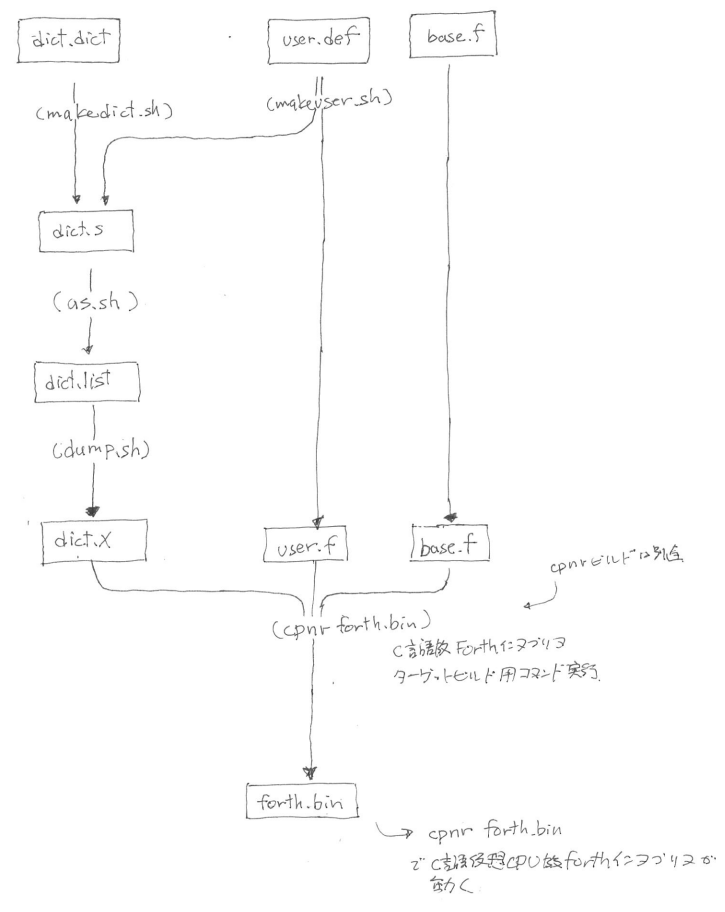 dict.dict
user.def
base.f
(makedict.sh)
(makeuser.sh)
dict.s
(as.sh)
dict.list
(dump.sh)
dict.x
user.f
base.f
cpnrビルドは別途
(cpnr forth.bin)
C言語版Forthインタプリタ
ターゲットビルド用コマンド実行
forth.bin
cpnr forth.bin
でC言語仮想CPU版forthインタプリタが
動く